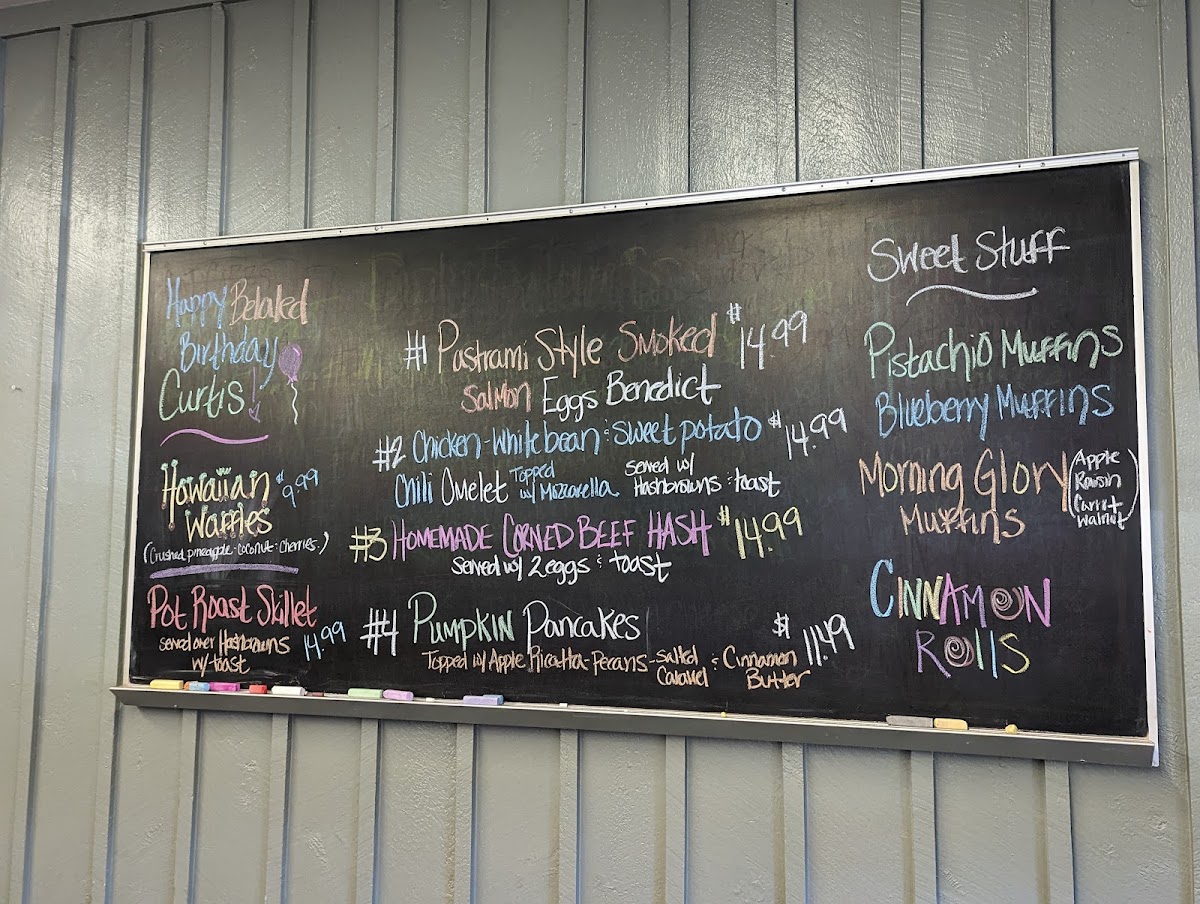 Happy Belated
Birthday
Curtis
Howaiian
Waffles
$9.99
(Crushed pineapple - coconut : cherries.)
Pot Roast Skillet
served over Hashbrowns
w/ toast
14.99
#1 Pastrami Style Smoked $14.99
Salmon Eggs Benedict
#2 Chicken - White bean : sweet potato $14.99
Chili Omelet Topped w/ Mozzarella served w/ Hashbrowns : toast
#3 HOMEMADE CORNED BEEF HASH $14.99
served w/ 2 eggs : toast
#4 Pumpkin Pancakes $11.49
Topped w/ Apple Ricotta - Pecans - Salted Caramel : Cinnamon Butter
Sweet Stuff
Pistachio Muffins
Blueberry Muffins
Morning Glory
Muffins
(Apple
Raisin
Carrot
Walnut)
CINNAMON
ROLLS